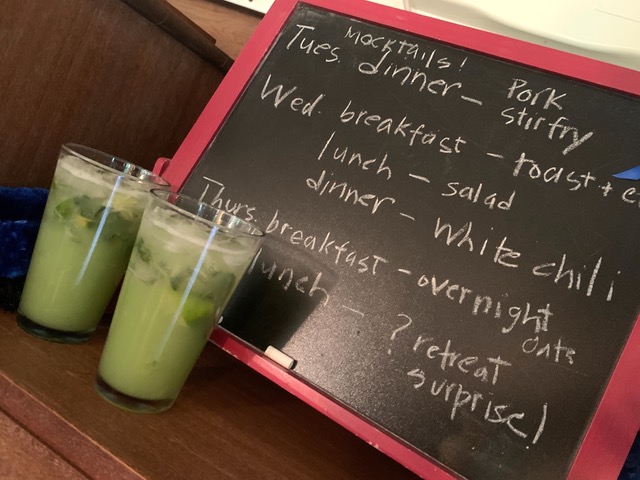 Mocktails!
Tues. dinner - Pork
stir fry
Wed. breakfast - toast +
lunch - salad
dinner - white chili
Thurs. breakfast - overnight
oats
lunch - ? retreat
surprise!